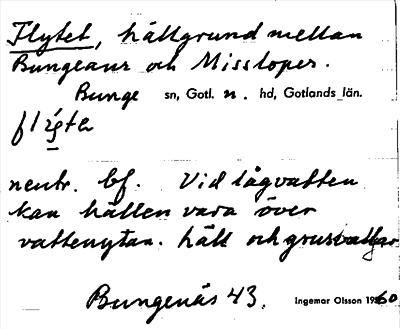 Flytet, hällgrund mellan
Bungeaur och Missloper.
Bunge sn, Gotl. n. hd, Gotlands län.
neutr. bf. Vid lågvatten
kan hällen vara över
vattenytan. häll och
Bungenäs 43. Ingemar Olsson 1960